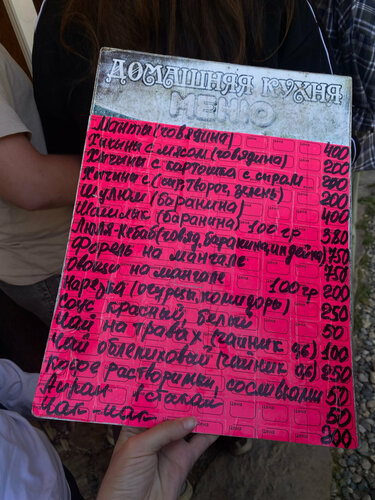 ДОМАШНЯЯ КУХНЯ
МЕНЮ
Манты (говядина) 400
Хычины с мясом (говядина) 200
Хычины с картошка с сыром 200
Хычины с (сыр, творог, зелень) 200
Шулюм (баранина) 400
Шашлык (баранина) 100 гр 380
Люля-кебаб (говяд, баранина, индейка) 750
Форель на мангале 750
Овощи на мангале 100 гр 200
Нарезка (огурцы, помидоры) 250
Соус красный, белый 50
Чай на травах (чайник 0,6) 100
Чай облепиховый (чайник 0,6) 250
Кофе растворимый, со сливками 50
Айран 1 стакан 50
Чак-чак 200